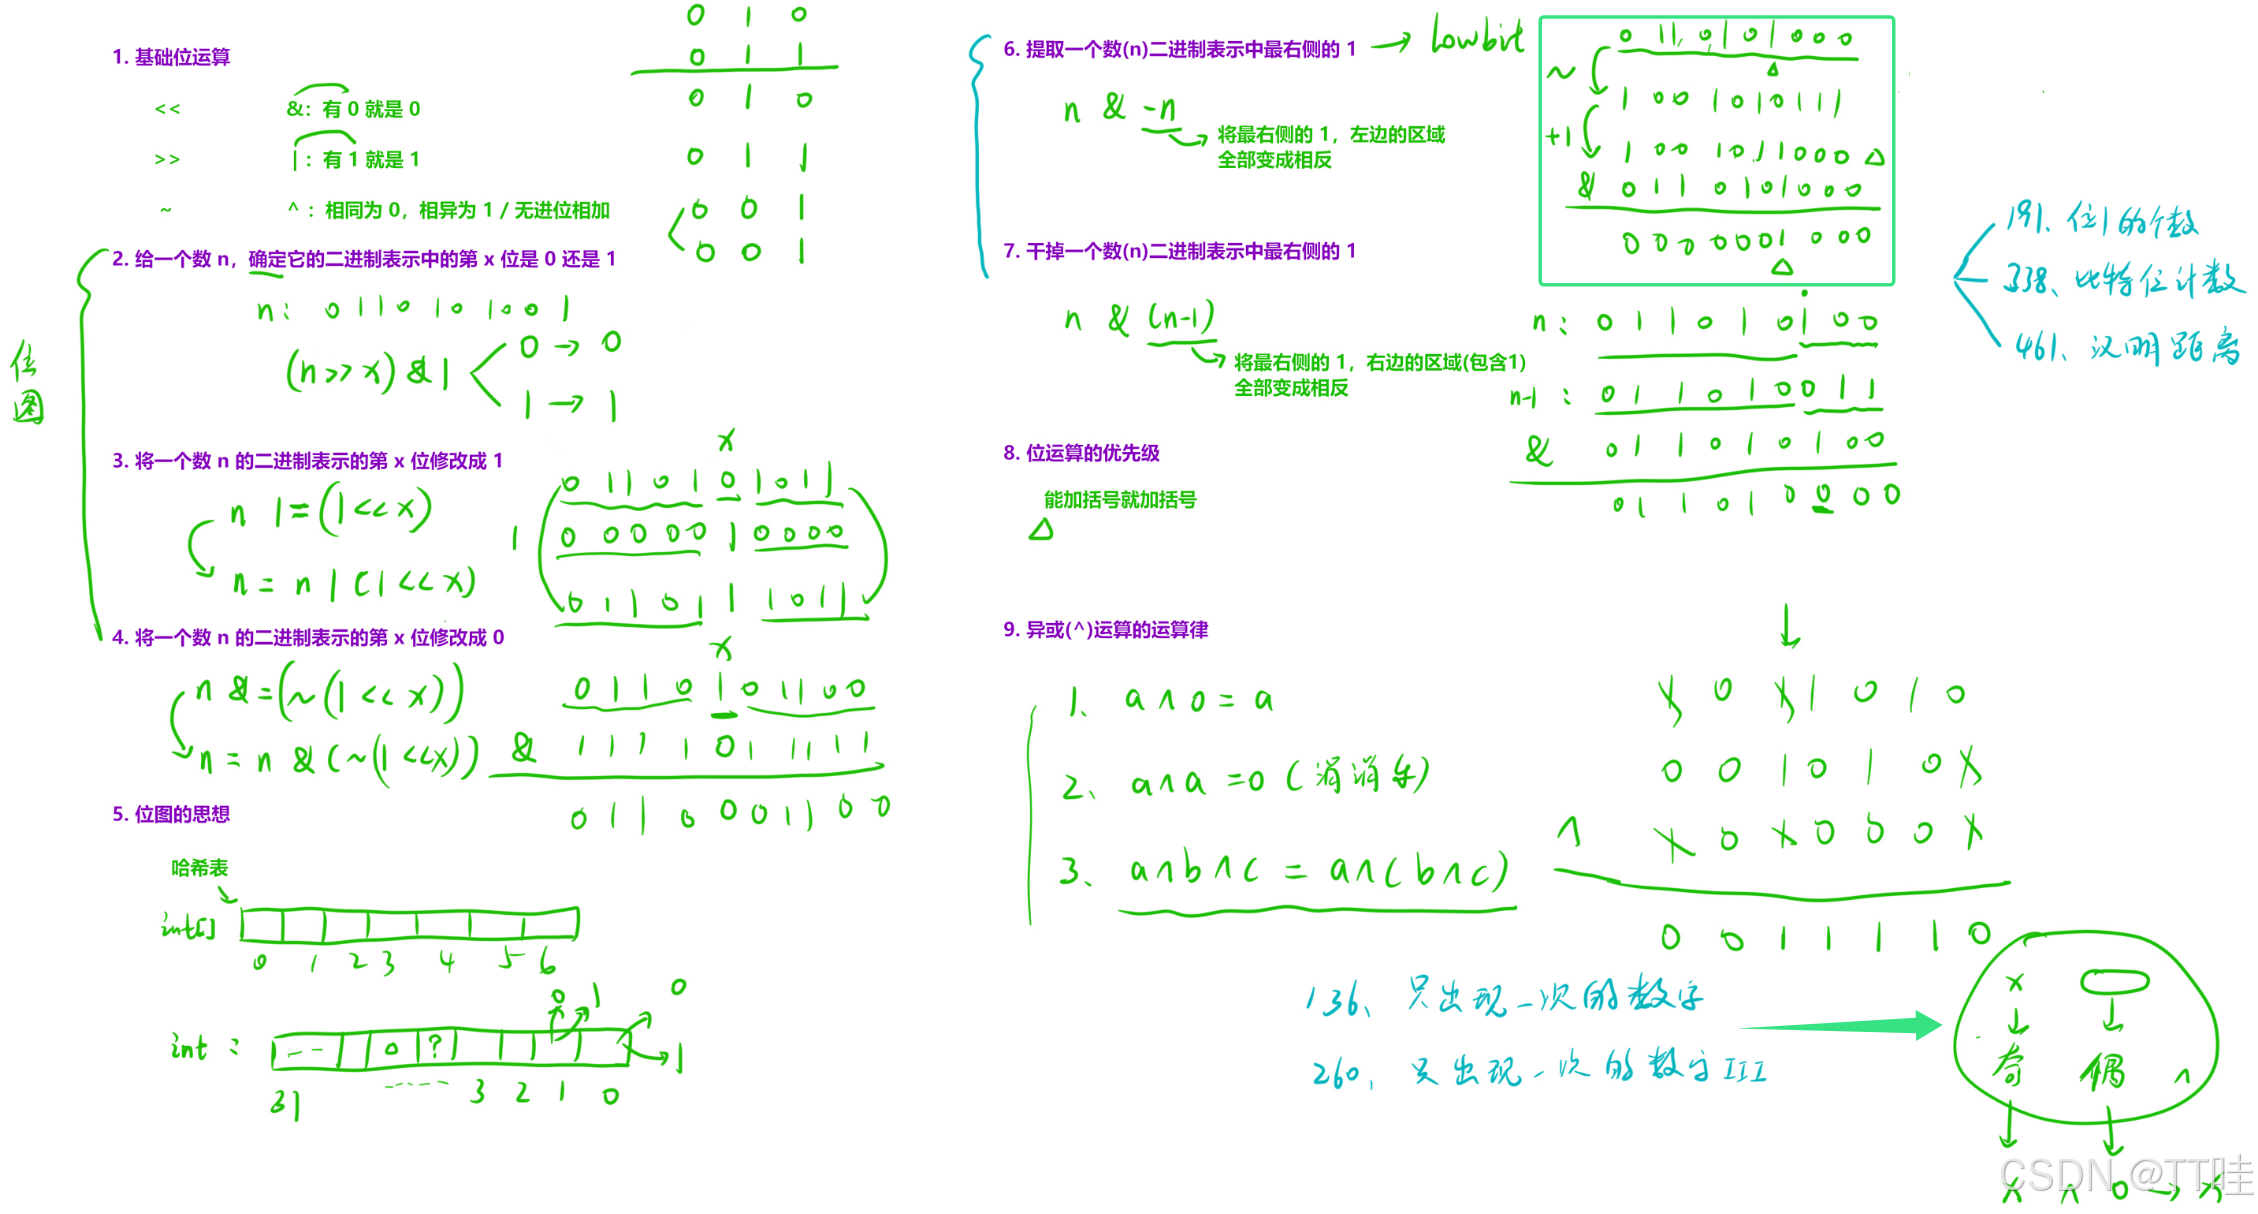 1. 基础位运算
<<
&: 有 0 就是 0
>>
| : 有 1 就是 1
~
^ : 相同为 0，相异为 1 / 无进位相加
0 1 0
0 1 1
0 1 0
0 1 1
0 0 1
0 0 1
位图
2. 给一个数 n，确定它的二进制表示中的第 x 位是 0 还是 1
n: 0 1 1 0 1 0 1 0 0 1
(n >> x) & 1
0 → 0
1 → 1
3. 将一个数 n 的二进制表示的第 x 位修改成 1
n |= (1 << x)
n = n | (1 << x)
x
0 1 1 0 1 0 1 0 1 1
| 0 0 0 0 0 1 0 0 0 0
0 1 1 0 1 1 1 0 1 1
4. 将一个数 n 的二进制表示的第 x 位修改成 0
n &= (~(1 << x))
n = n & (~(1 << x))
x
0 1 1 0 1 0 1 1 0 0
& 1 1 1 1 0 1 1 1 1 1
0 1 1 0 0 0 1 1 0 0
5. 位图的思想
哈希表
int[]
0 1 2 3 4 5 6
int :
0 ?
0 1
0
1
31 3 2 1 0
6. 提取一个数(n)二进制表示中最右侧的 1 → lowbit
n & -n
将最右侧的 1，左边的区域
全部变成相反
0 1 1 0 1 0 1 0 0 0
~
1 0 0 1 0 1 0 1 1 1
+1
1 0 0 1 0 1 1 0 0 0
& 0 1 1 0 1 0 1 0 0 0
0 0 0 0 0 0 1 0 0 0
7. 干掉一个数(n)二进制表示中最右侧的 1
n & (n-1)
将最右侧的 1，右边的区域(包含1)
全部变成相反
n : 0 1 1 0 1 0 1 0 0
n-1 : 0 1 1 0 1 0 0 1 1
& 0 1 1 0 1 0 1 0 0
0 1 1 0 1 0 0 0 0
191、位1的个数
338、比特位计数
461、汉明距离
8. 位运算的优先级
能加括号就加括号
9. 异或(^)运算的运算律
1、 a ^ 0 = a
2、 a ^ a = 0 (消消乐)
3、 a ^ b ^ c = a ^ (b ^ c)
0 1 0 1 0
0 0 1 0 1 0
^ 0 0 0 0
0 0 1 1 1 1 0
136、只出现一次的数字
260、只出现一次的数字 III
x
奇 偶 ^
x ^ 0 → x
CSDN @TT哇